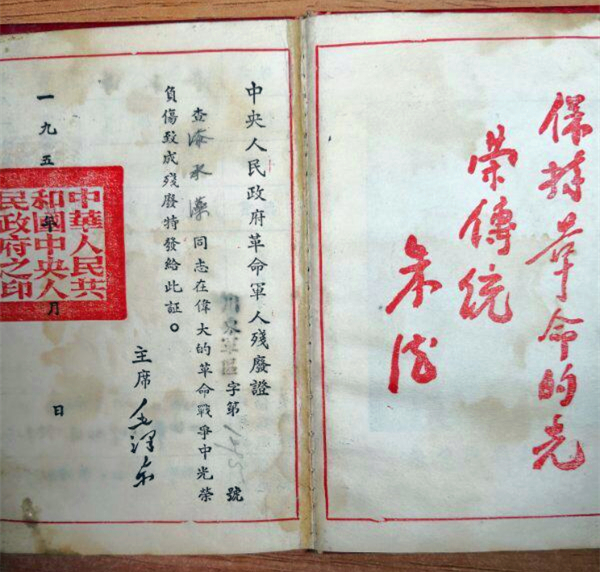 保持革命的光
荣传統
朱德
中央人民政府革命軍人殘廢證
川東軍區字第號
查同志在偉大的革命戰爭中光榮
負傷致成殘廢特發給此証。
主席毛澤东
一九五年月日
中華人民共
和國中央人
民政府之印